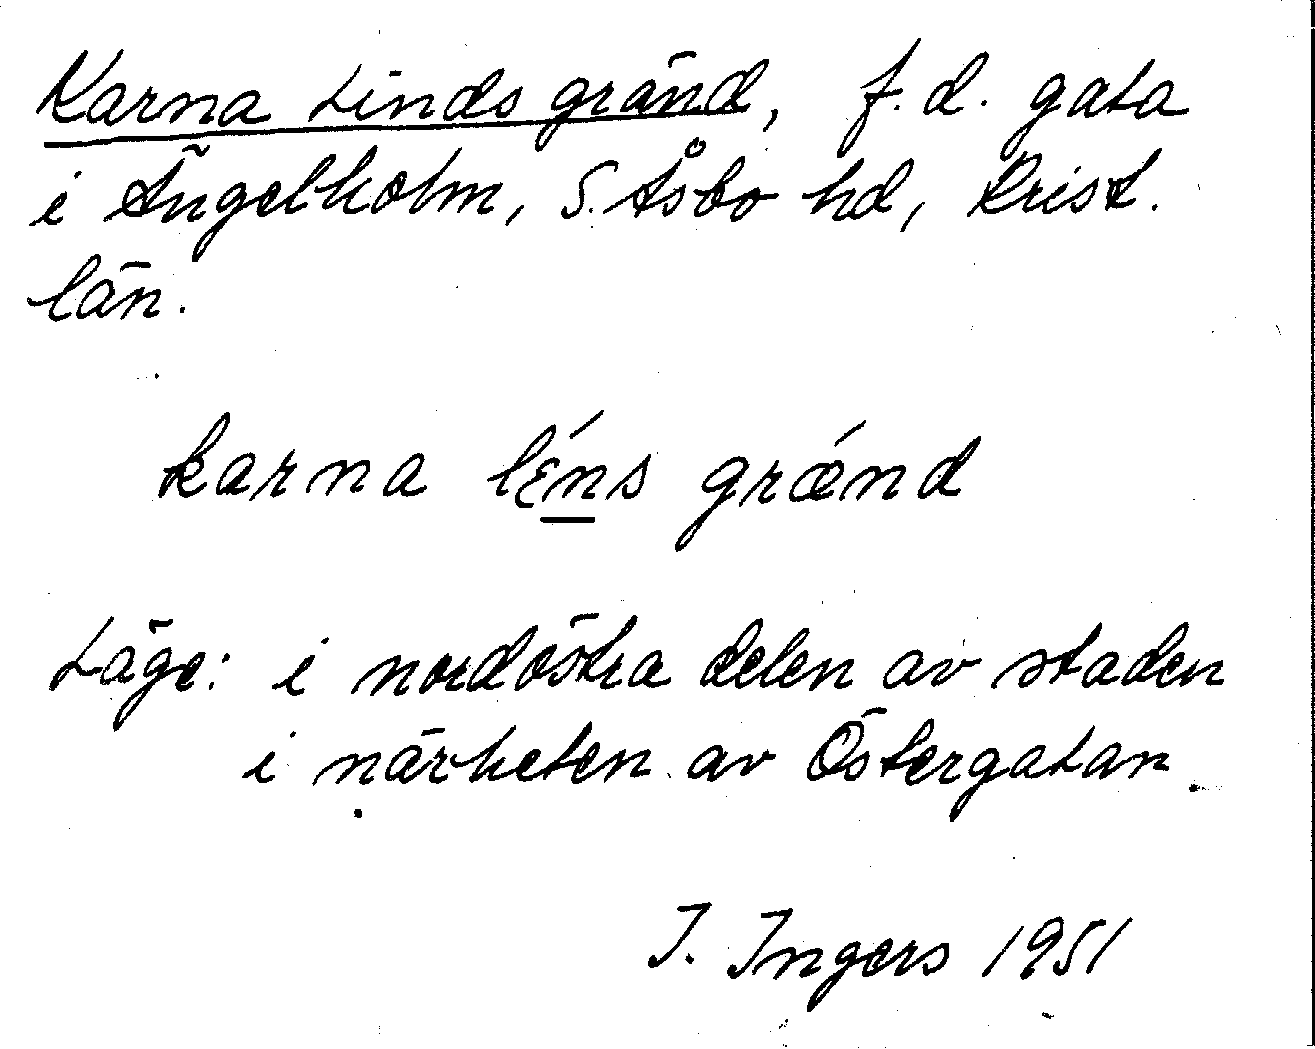 Karna Linds gränd, f.d. gata
i Ängelholm, S. Åsbo hd, Krist.
län.
karna lɛ́ns grǽnd
Läge: i nordöstra delen av staden
i närheten av Östergatan.
I. Ingers 1951